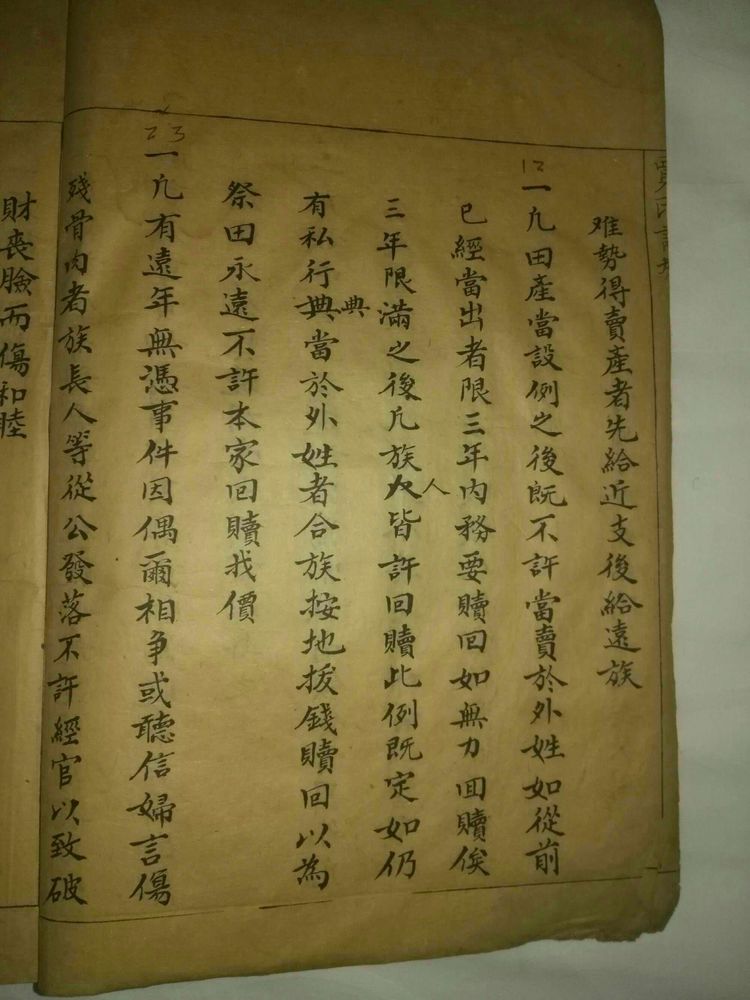 难勢得賣產者先給近支後給遠族
12
一凢田產當設例之後既不許當賣於外姓如從前
已經當出者限三年内務要贖回如無力回贖俟
三年限滿之後凢族人皆許回贖此例既定如仍
人
有私行典當於外姓者合族按地拔錢贖回以為
典
祭田永遠不許本家回贖找價
23
一凢有遠年無憑事件因偶爾相争或聽信婦言傷
殘骨肉者族長人等從公發落不許經官以致破
財喪臉而傷和睦